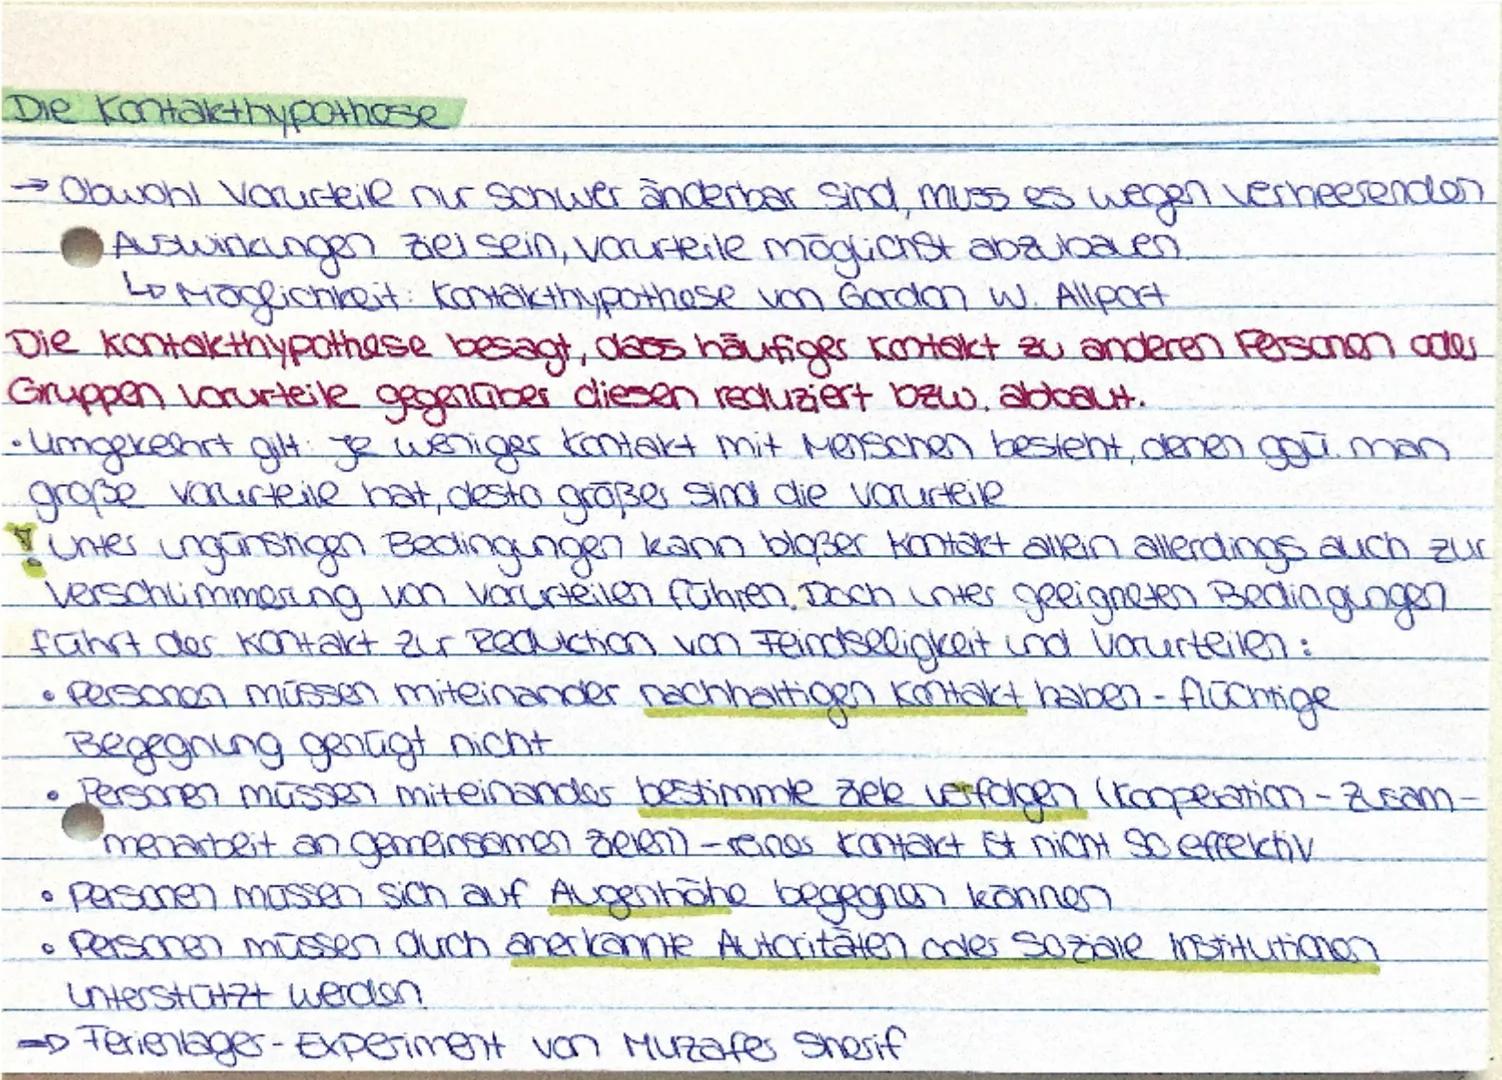 Die Kontakthypothese
→ Obwohl Vorurteile nur schwer änderbar sind, muss es wegen verheerenden
Auswirkungen Ziel sein, Vorurteile möglichst abzubauen
↳ Möglichkeit: Kontakthypothese von Gordon W. Allport
Die Kontakthypothese besagt, dass häufiger Kontakt zu anderen Personen oder
Gruppen Vorurteile gegenüber diesen reduziert bzw. abbaut.
• Umgekehrt gilt: Je weniger Kontakt mit Menschen besteht, denen ggü. man
große Vorurteile hat, desto größer sind die Vorurteile
! Unter ungünstigen Bedingungen kann bloßer Kontakt allein allerdings auch zur
Verschlimmerung von Vorurteilen führen. Doch unter geeigneten Bedingungen
führt der Kontakt zur Reduktion von Feindseligkeit und Vorurteilen:
• Personen müssen miteinander nachhaltigen Kontakt haben - flüchtige
Begegnung genügt nicht
• Personen müssen miteinander bestimmte Ziele verfolgen (Kooperation - Zusam-
menarbeit an gemeinsamen Zielen) - reiner Kontakt ist nicht so effektiv
• Personen müssen sich auf Augenhöhe begegnen können
• Personen müssen durch anerkannte Autoritäten oder soziale Institutionen
unterstützt werden
⇒ Ferienlager - Experiment von Muzafer Sherif